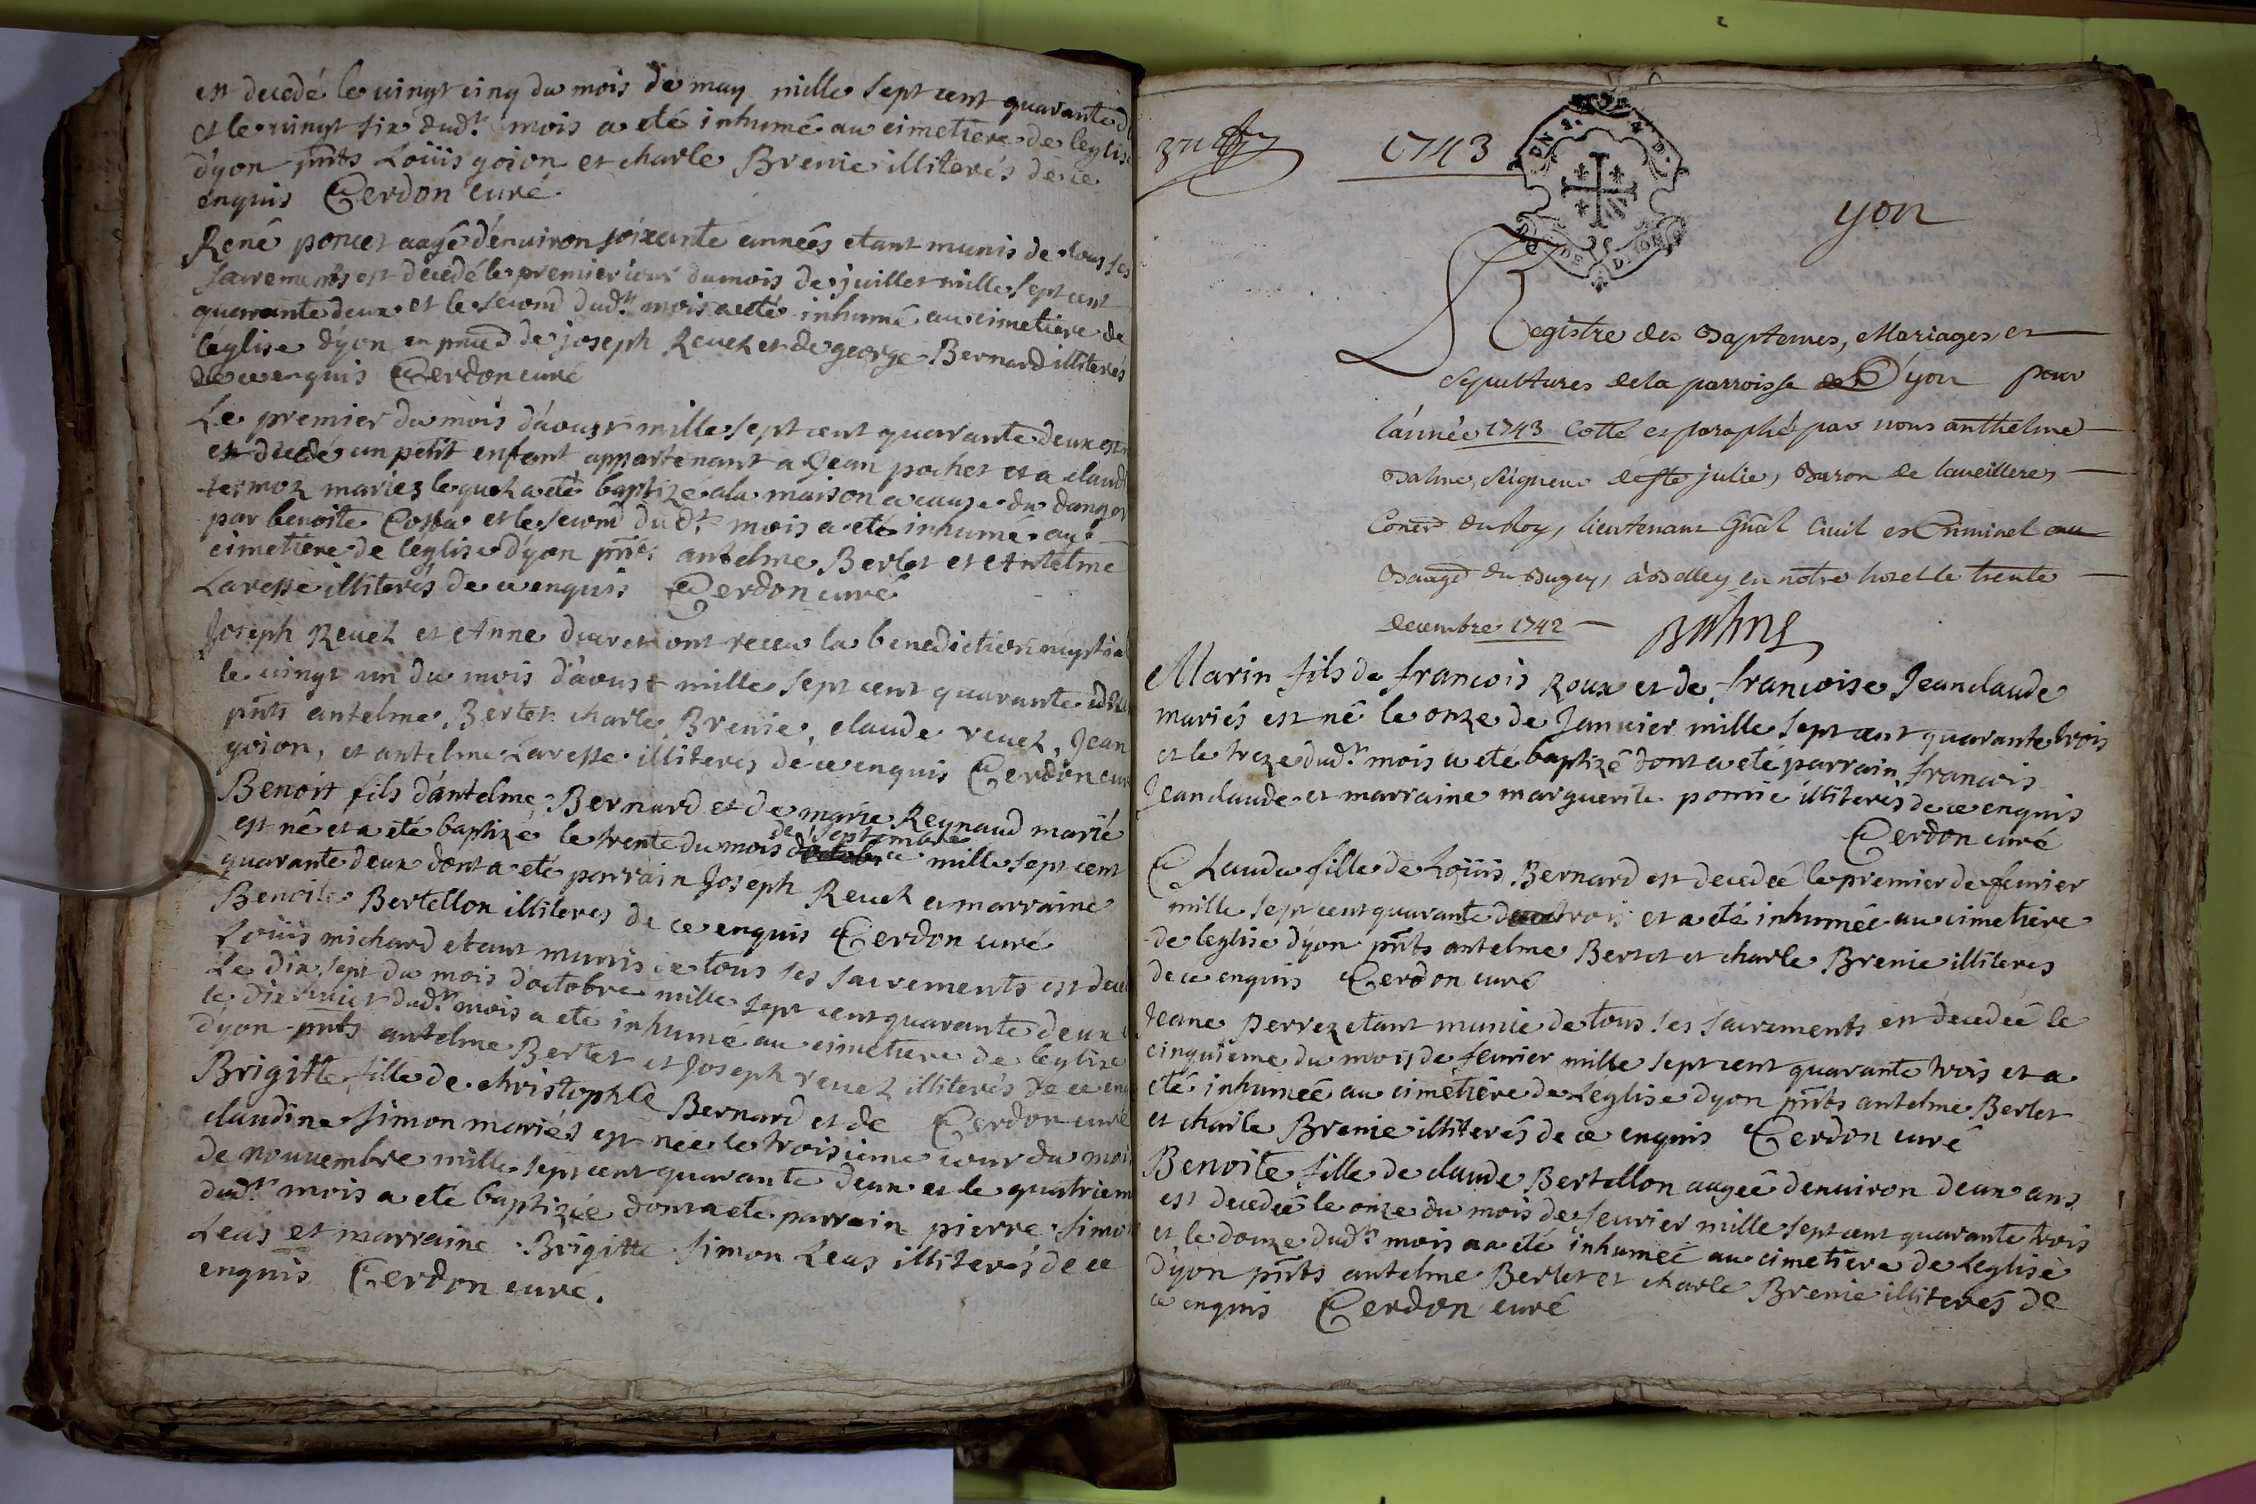 est decedé le vingt cinq du mois de may mille sept cent quarante d
et le vingt six dudt mois a eté inhumé au cimetiere de leglise
d'yon pnts Loüis goion et charle Brenie illiterés de ce
enquis Cerdon curé
René poncet aagé d'environ soixante années etant munis de tous ses
sacrements est decedé le premier iour du mois de juillet mille sept cent
quarante deux et le second dudt mois a eté inhumé au cimetiere de
leglise d'yon en de joseph Revel et de george Bernard illiterés
de ce enquis Cerdon curé
Le premier du mois d'aoust mille sept cent quarante deux est
est decedé un petit enfant appartenant a Jean pochet et a claud
termoz mariez lequel a eté baptizé a la maison a cause du danger
par benoite Costa et le second dudt mois a eté inhumé au
cimetiere de leglise d'yon pnts antelme Berlet et Antelme
Laresse illiterés de ce enquis Cerdon curé
Joseph Revel et Anne ont receu la benediction nuptial
le vingt un du mois d'aoust mille sept cent quarante
pnts antelme Berlet charle Brenie, claude revel, Jean
goion, et antelme Laresse illiterés de ce enquis Cerdon cur
Benoit fils d'antelme Bernard et de marie Reynaud marié
de septembre
est né et a eté baptize le trente du mois d'octobre mille sept cent
quarante deux dont a eté parrain Joseph Revel et marraine
Benoite Bertellon illiteres de ce enquis Cerdon curé
Loüis michard etant munis de tous ses sacrements est dece
Le dix sept du mois d'octobre mille sept cent quarante deux
le dix huict dudt mois a eté inhumé au cimetiere de leglise
d'yon pnts antelme Berlet et Joseph revel illiterés de ce en
Brigitte fille de christophle Bernard et de Cerdon curé
claudine simon mariés est née le troisieme iour du moi
de nouvembre mille sept cent quarante deux et le quatriem
dudt mois a eté baptizée dont a eté parrain pierre simon
Leas et marraine Brigitte simon Leas illiterés de ce
enquis Cerdon curé.
1743
yon
Registre des Baptemes, Mariages et
Sepultures de la parroisse D'yon pour
l'année 1743 Cotté et paraphé par nous anthelme
Balme, Seigneur de ste julie, Baron de
Coner du Roy, lieutenant Gnál Civil et Criminel au
Baage du Bugey, à Belley en notre hotel le trente
decembre 1742
Balme
Marin fils de francois Roux et de francoise Jeanclaude
mariés est né le onze de Janvier mille sept cent quarante trois
et le treze dudt mois a eté baptizé dont a eté parrain francois
Jeanclaude et marraine marguerite pomié illiterés de ce enquis
Cerdon curé
Clauda fille de Loüis Bernard est decedée le premier de fevrier
mille sept cent quarante deux trois et a eté inhumée au cimetiere
de leglise d'yon pnts antelme Berlet et charle Brenie illiteres
de ce enquis Cerdon curé
Jeane perrez etant munie de tous ses sacrements est decedeé le
cinquieme du mois de fevrier mille sept cent quarante trois et a
eté inhumeé au cimetiere de Leglise d'yon pnts antelme Berlet
et charle Brenie illiterés de ce enquis Cerdon curé
Benoite fille de claude Bertellon aageé d'environ deux ans
est decedeé le onze du mois de fevrier mille sept cent quarante trois
et le douze dudt mois a eté inhumeé au cimetiere de Leglise
d'yon pnts antelme Berlet et charle Brenie illiterés de
ce enquis Cerdon curé